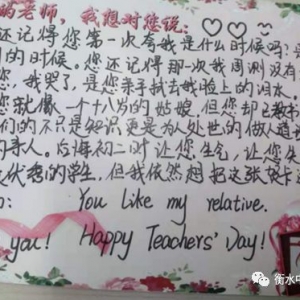 的老师，我想对您说：
还记得您第一次夸我是什么时候吗？
的时候。您还记得那一次我周测没有
，我哭了，是您亲手拭去我脸上的泪水。
您就像一个十八岁的姑娘，但您却已教书
们的不只是知识更是为人处世的做人道
的亲人。后悔初二时让您生气，让您失
优秀的学生，但我依然想把这张贺卡
You like my relative.
you! Happy Teachers' Day!
衡水中